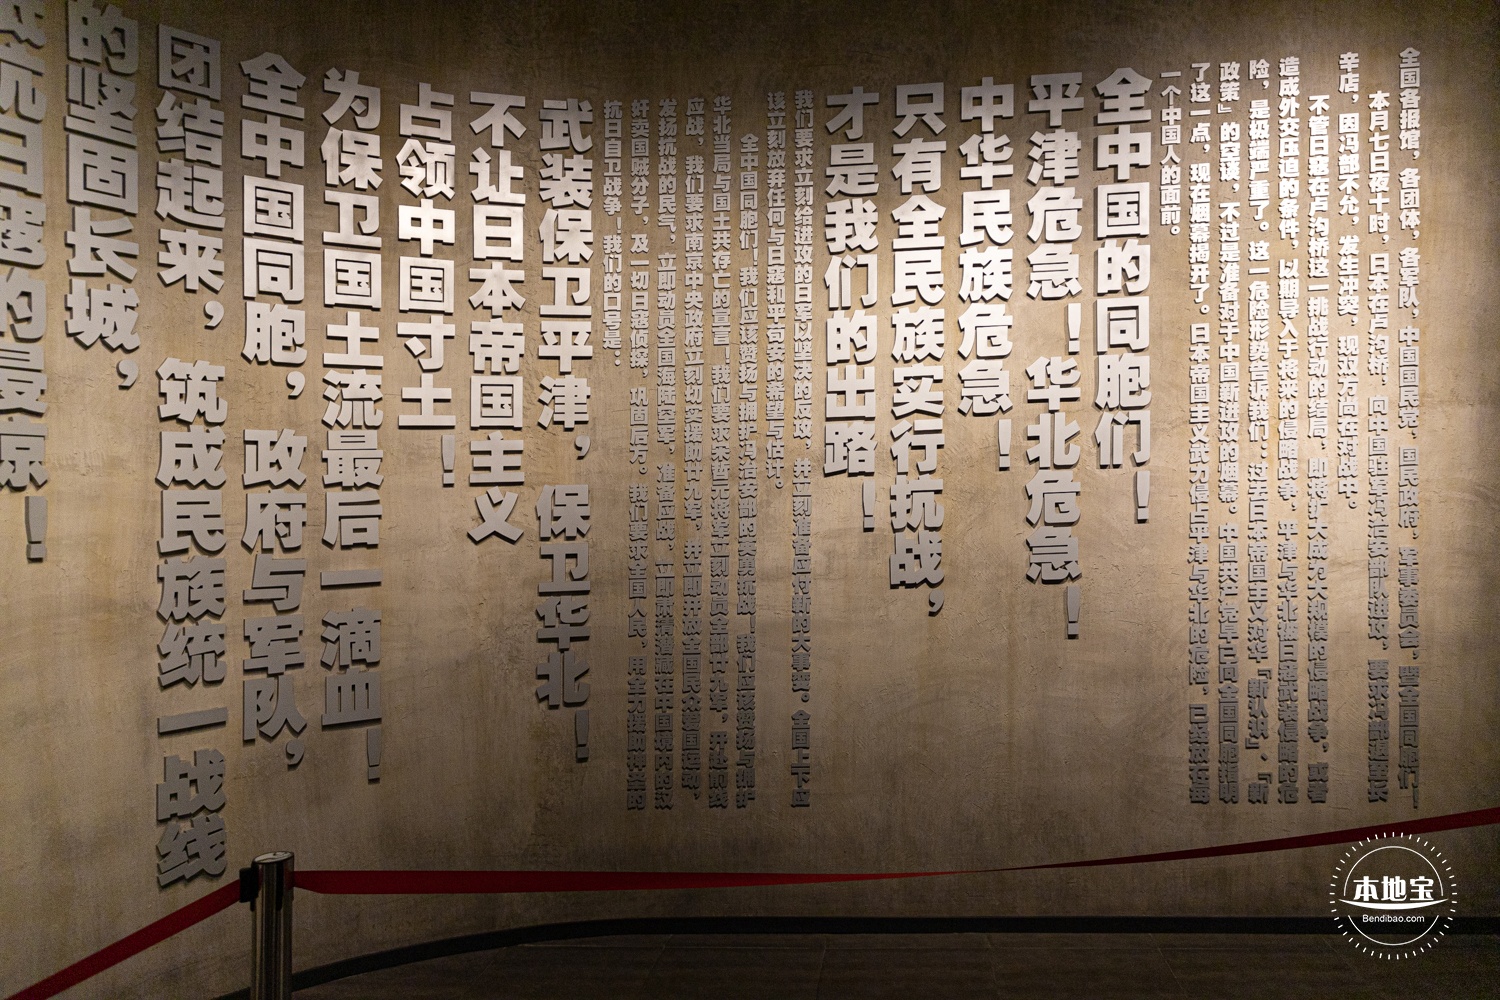 全国各报馆，各团体，各军队，中国国民党，国民政府，军事委员会，暨全国同胞们！
本月七日夜十时，日本在卢沟桥，向中国驻军冯治安部队进攻，要求冯部退至长
辛店，因冯部不允，发生冲突，现双方尚在对战中。
不管日寇在卢沟桥这一挑战行动的结局，即将扩大成为大规模的侵略战争，或者
造成外交压迫的条件，以期导入于将来的侵略战争，平津与华北被日寇武装侵略的危
险，是极端严重了。这一危险形势告诉我们：过去日本帝国主义对华『新认识』、『新
政策』的空谈，不过是准备对于中国新进攻的烟幕。中国共产党早已向全国同胞指明
了这一点，现在烟幕揭开了。日本帝国主义武力侵占平津与华北的危险，已经放在每
一个中国人的面前。
全中国的同胞们！
平津危急！华北危急！
中华民族危急！
只有全民族实行抗战，
才是我们的出路！
我们要求立刻给进攻的日军以坚决的反攻，并立刻准备应付新的大事变。全国上下应
该立刻放弃任何与日寇和平苟安的希望与估计。
全中国同胞们！我们应该赞扬与拥护冯治安部的英勇抗战！我们应该赞扬与拥护
华北当局与国土共存亡的宣言！我们要求宋哲元将军立刻动员全部廿九军，开赴前线
应战，我们要求南京中央政府立刻切实援助廿九军，并立即开放全国民众爱国运动，
发扬抗战的民气，立即动员全国海陆空军，准备应战，立即肃清潜藏在中国境内的汉
奸卖国贼分子，及一切日寇侦探，巩固后方。我们要求全国人民，用全力援助神圣的
抗日自卫战争！我们的口号是：
武装保卫平津，保卫华北！
不让日本帝国主义
占领中国寸土！
为保卫国土流最后一滴血！
全中国同胞，政府与军队，
团结起来，筑成民族统一战线
的坚固长城，
抗日寇的侵掠！
本地宝
Bendibao.com